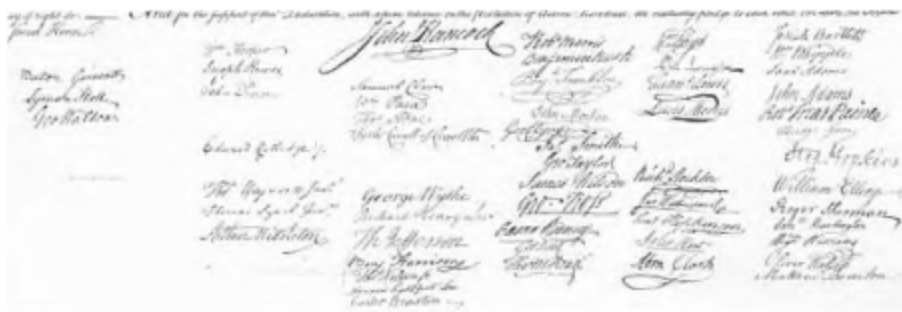 And for the support of this Declaration, with a firm reliance on the Protection of
Button Gwinnett
Lyman Hall
Geo Walton
Wm Hooper
Joseph Hewes
John Penn
Edward Rutledge
Thos Heyward Junr
Thomas Lynch Junr
Arthur Middleton
John Hancock
Samuel Chase
Wm Paca
Thos Stone
Charles Carroll of Carrollton
George Wythe
Richard Henry Lee
Th Jefferson
Benj Harrison
Thos Nelson jr
Francis Lightfoot Lee
Carter Braxton
Robt Morris
Benjamin Rush
Benj Franklin
John Morton
Geo Clymer
Jas Smith
Geo Taylor
James Wilson
Geo Ross
Caesar Rodney
Geo Read
Tho M:Kean
Frans Lewis
Lewis Morris
Richd Stockton
Jno Witherspoon
Fras Hopkinson
John Hart
Abra Clark
Josiah Bartlett
Wm Whipple
Saml Adams
John Adams
Robt Treat Paine
Elbridge Gerry
Step Hopkins
William Ellery
Roger Sherman
Saml Huntington
Wm Williams
Oliver Wolcott
Matthew Thornton